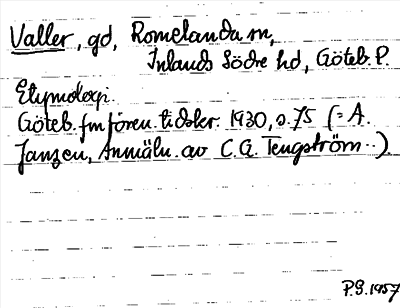 Valler, gd, Romelanda sn,
Inlands Södre hd, Göteb. P.
Etymologi.
Göteb. fmfören. tidskr. 1930, s. 75 (= A.
Janzén, Anmäln. av C. G. Tengström..).
P.G. 1957